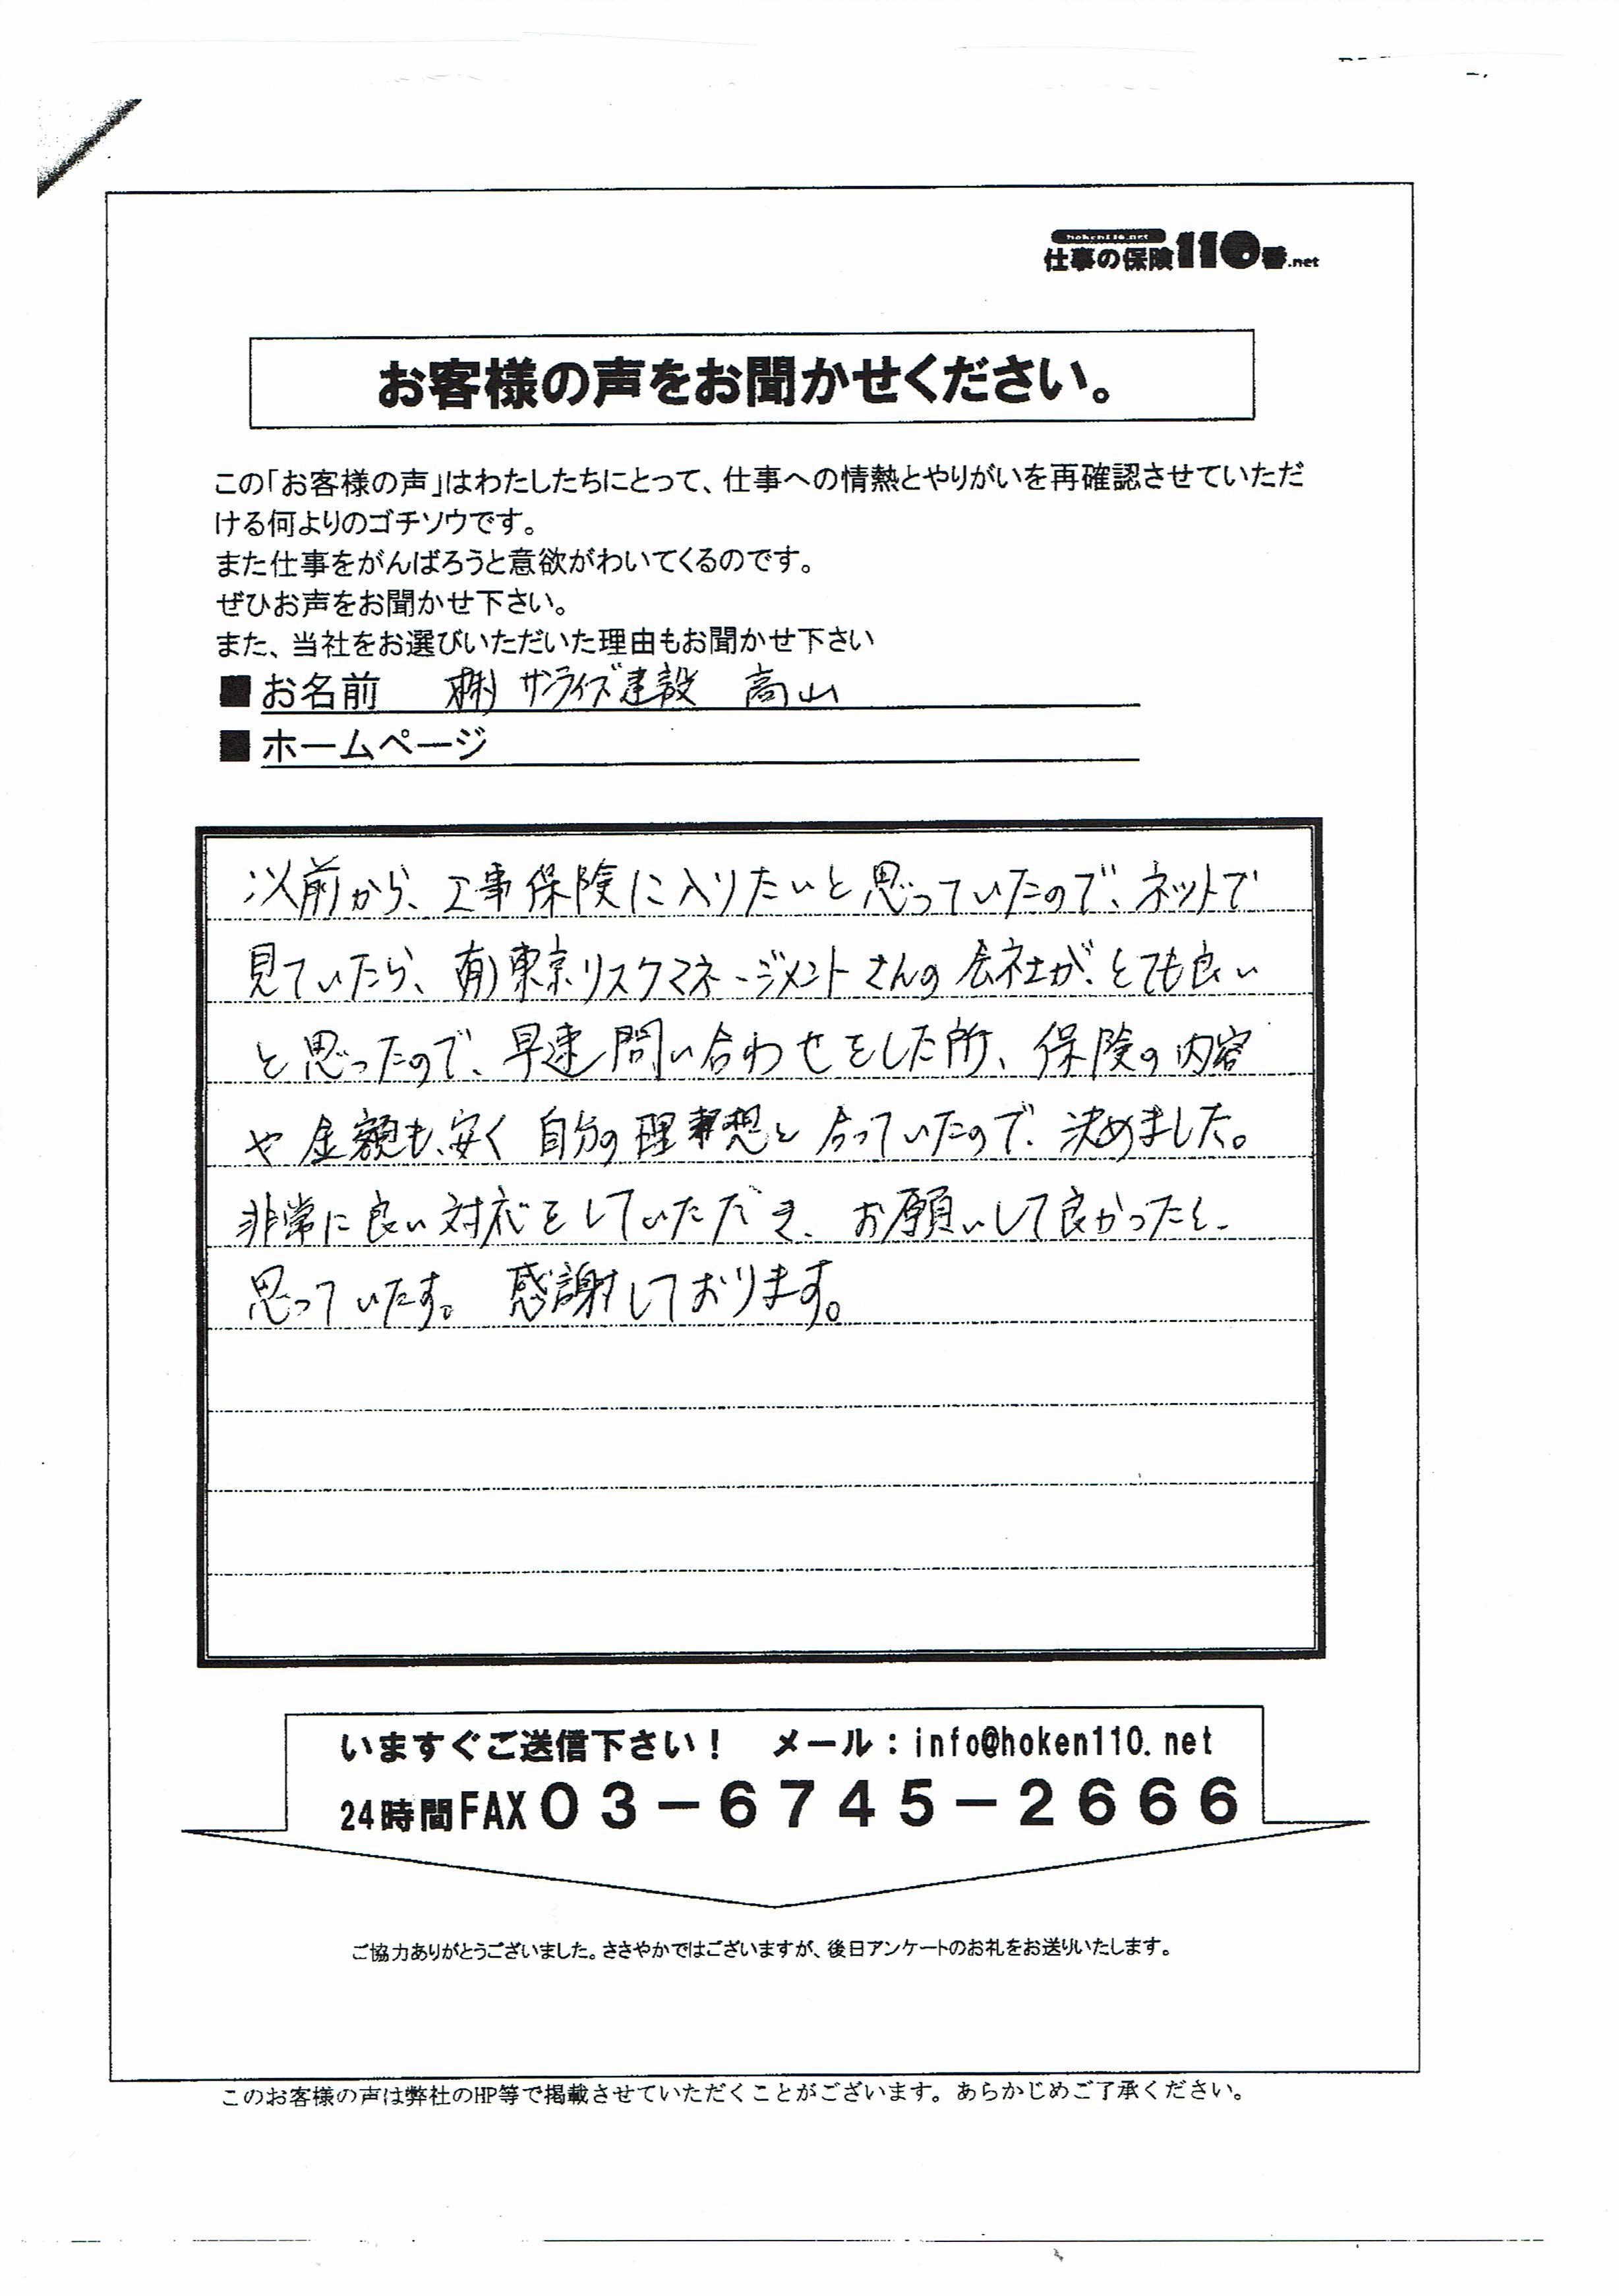 hoken110.net
仕事の保険110番.net
お客様の声をお聞かせください。
この「お客様の声」はわたしたちにとって、仕事への情熱とやりがいを再確認させていただ
ける何よりのゴチソウです。
また仕事をがんばろうと意欲がわいてくるのです。
ぜひお声をお聞かせ下さい。
また、当社をお選びいただいた理由もお聞かせ下さい
■お名前 ㈱サンライズ建設 高山
■ホームページ
以前から、工事保険に入りたいと思っていたので、ネットで
見ていたら、㈲東京リスクマネージメントさんの会社が、とても良い
と思ったので、早速問い合わせをした所、保険の内容
や金額も、安く自分の理想と合っていたので、決めました。
非常に良い対応をしていただき、お願いして良かったと、
思っています。感謝しております。
いますぐご送信下さい！ メール：info@hoken110.net
24時間FAX０３－６７４５－２６６６
ご協力ありがとうございました。ささやかではございますが、後日アンケートのお礼をお送りいたします。
このお客様の声は弊社のHP等で掲載させていただくことがございます。あらかじめご了承ください。